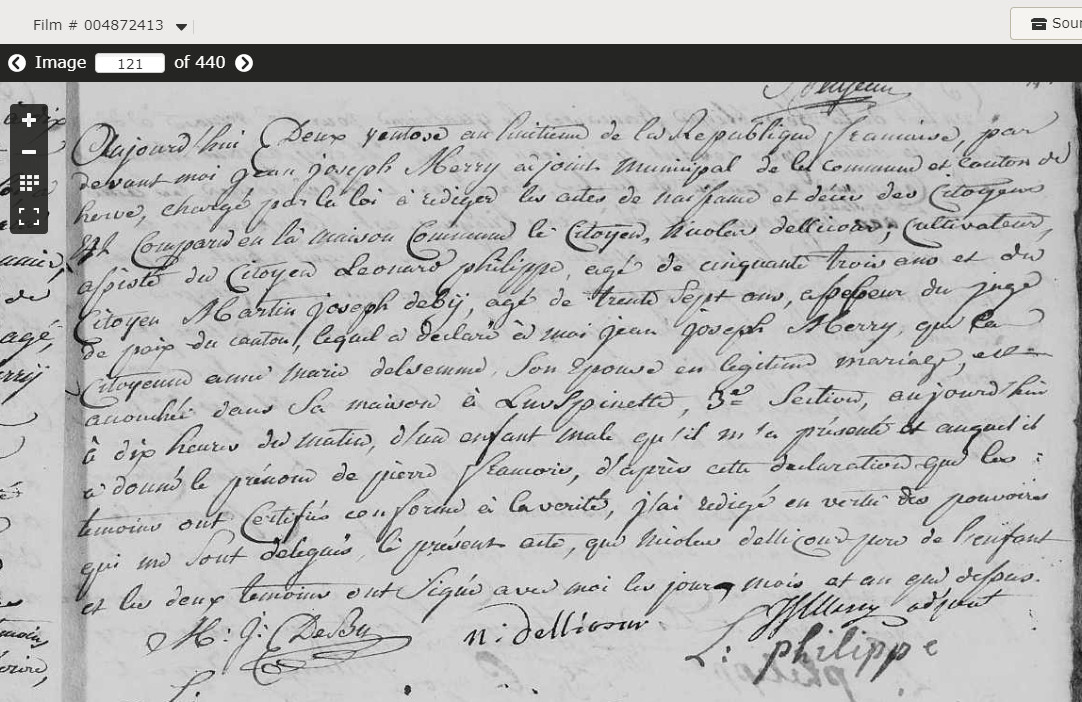 Film # 004872413
Sour
Image 121 of 440
Aujourd'hui Deux ventose an huitieme de la Republique francaise, par
devant moi jean joseph Merry adjoint municipal de la Commune et canton de
herve, chargé par la loi à rediger les actes de naissance et décès des Citoyens
Est Comparu en la maison Commune le Citoyen, Nicolas dellicour, Cultivateur,
assisté du Citoyen Leonard philippe, agé de cinquante trois ans et du
Citoyen Martin joseph deby, agé de trente sept ans, assesseur du juge
de paix du canton, lequel a declaré à moi jean joseph Merry, que la
Citoyenne anne marie delsemme, Son Epouse en legitime mariage, est
accouchée dans Sa maison à 3e Section, aujourd'hui
à dix heures du matin, d'un enfant male qu'il m'a présenté et auquel il
a donné le prénom de pierre francois, d'après cette declaration que les
temoins ont Certifiés conforme à la verité, j'ai redigé en vertu des pouvoirs
qui me Sont delegués, le présent acte, que Nicolas dellicour pere de l'enfant
et les deux temoins ont Signé avec moi les jour, mois et an que dessus.
M: J: DeBy n: dellicour JJMerry adjoint
L: philippe